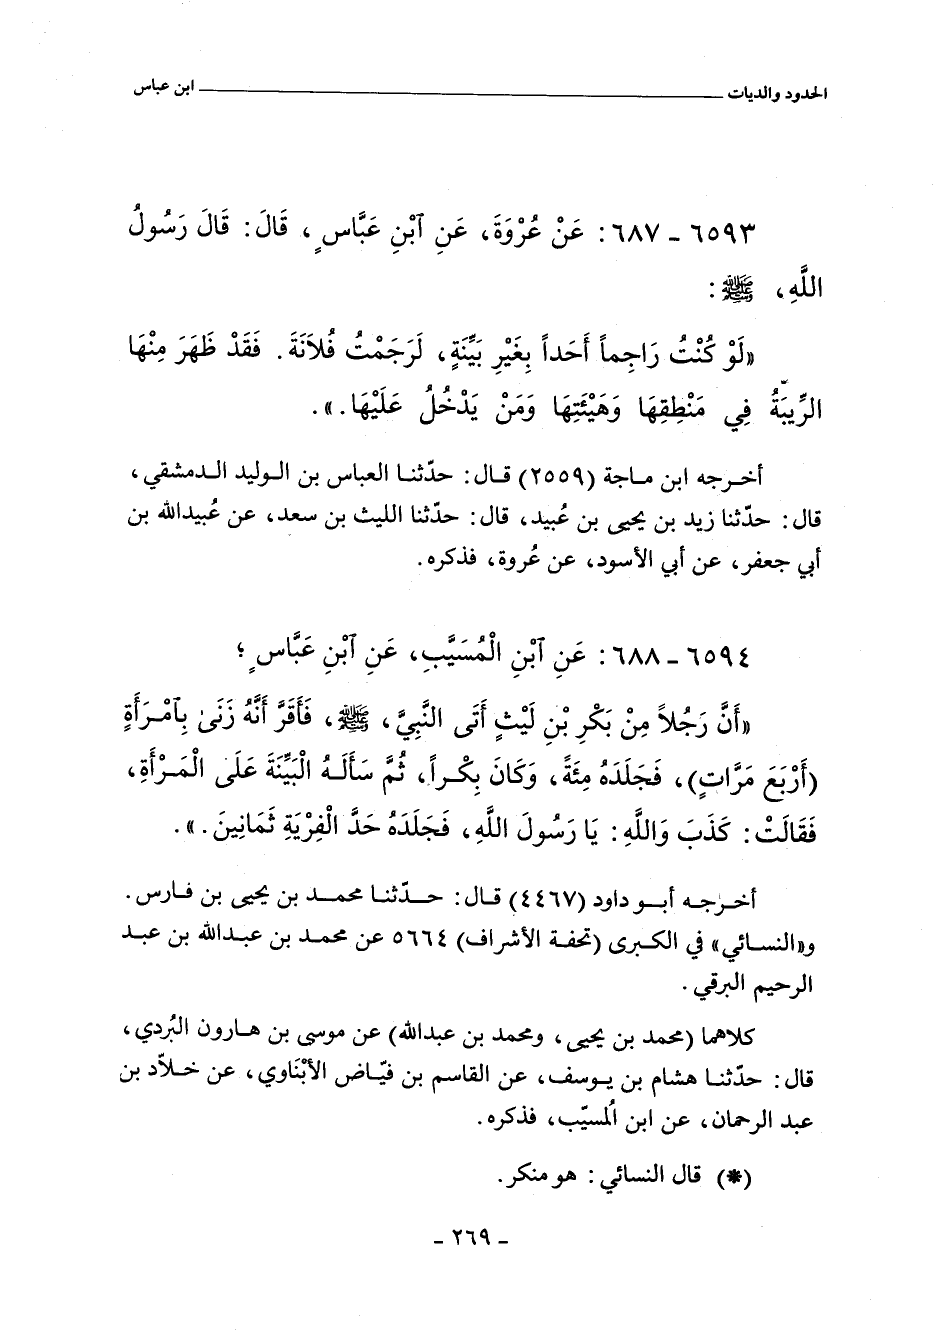 الحدود والديات ــــــــــــــــــــــــــــــــ ابن عباس
٦٥٩٣ - ٦٨٧: عَنْ عُرْوَةَ، عَنِ ٱبْنِ عَبَّاسٍ، قَالَ: قَالَ رَسُولُ
اللَّهِ، ﷺ:
«لَوْ كُنْتُ رَاجِماً أَحَداً بِغَيْرِ بَيِّنَةٍ، لَرَجَمْتُ فُلاَنَةَ. فَقَدْ ظَهَرَ مِنْهَا
الرِّيبَةُ فِي مَنْطِقِهَا وَهَيْئَتِهَا وَمَنْ يَدْخُلُ عَلَيْهَا.».
أخرجه ابن ماجة (٢٥٥٩) قال: حدّثنا العباس بن الوليد الدمشقي،
قال: حدّثنا زيد بن يحيى بن عُبيد، قال: حدّثنا الليث بن سعد، عن عُبيدالله بن
أبي جعفر، عن أبي الأسود، عن عُروة، فذكره.
٦٥٩٤ - ٦٨٨: عَنِ ٱبْنِ الْمُسَيَّبِ، عَنِ ٱبْنِ عَبَّاسٍ؛
«أَنَّ رَجُلاً مِنْ بَكْرِ بْنِ لَيْثٍ أَتَى النَّبِيَّ، ﷺ، فَأَقَرَّ أَنَّهُ زَنَىٰ بِٱمْرَأَةٍ
(أَرْبَعَ مَرَّاتٍ)، فَجَلَدَهُ مِئَةً، وَكَانَ بِكْراً، ثُمَّ سَأَلَهُ الْبَيِّنَةَ عَلَى الْمَرْأَةِ،
فَقَالَتْ: كَذَبَ وَاللَّهِ: يَا رَسُولَ اللَّهِ، فَجَلَدَهُ حَدَّ الْفِرْيَةِ ثَمَانِينَ.».
أخرجه أبو داود (٤٤٦٧) قال: حدّثنا محمد بن يحيى بن فارس.
و«النسائي» في الكبرى (تحفة الأشراف) ٥٦٦٤ عن محمد بن عبدالله بن عبد
الرحيم البرقي.
كلاهما (محمد بن يحيى، ومحمد بن عبدالله) عن موسى بن هارون البُردي،
قال: حدّثنا هشام بن يوسف، عن القاسم بن فيّاض الأبْناوي، عن خلاّد بن
عبد الرحمان، عن ابن المُسيّب، فذكره.
(*) قال النسائي: هو منكر.
- ٢٦٩ -